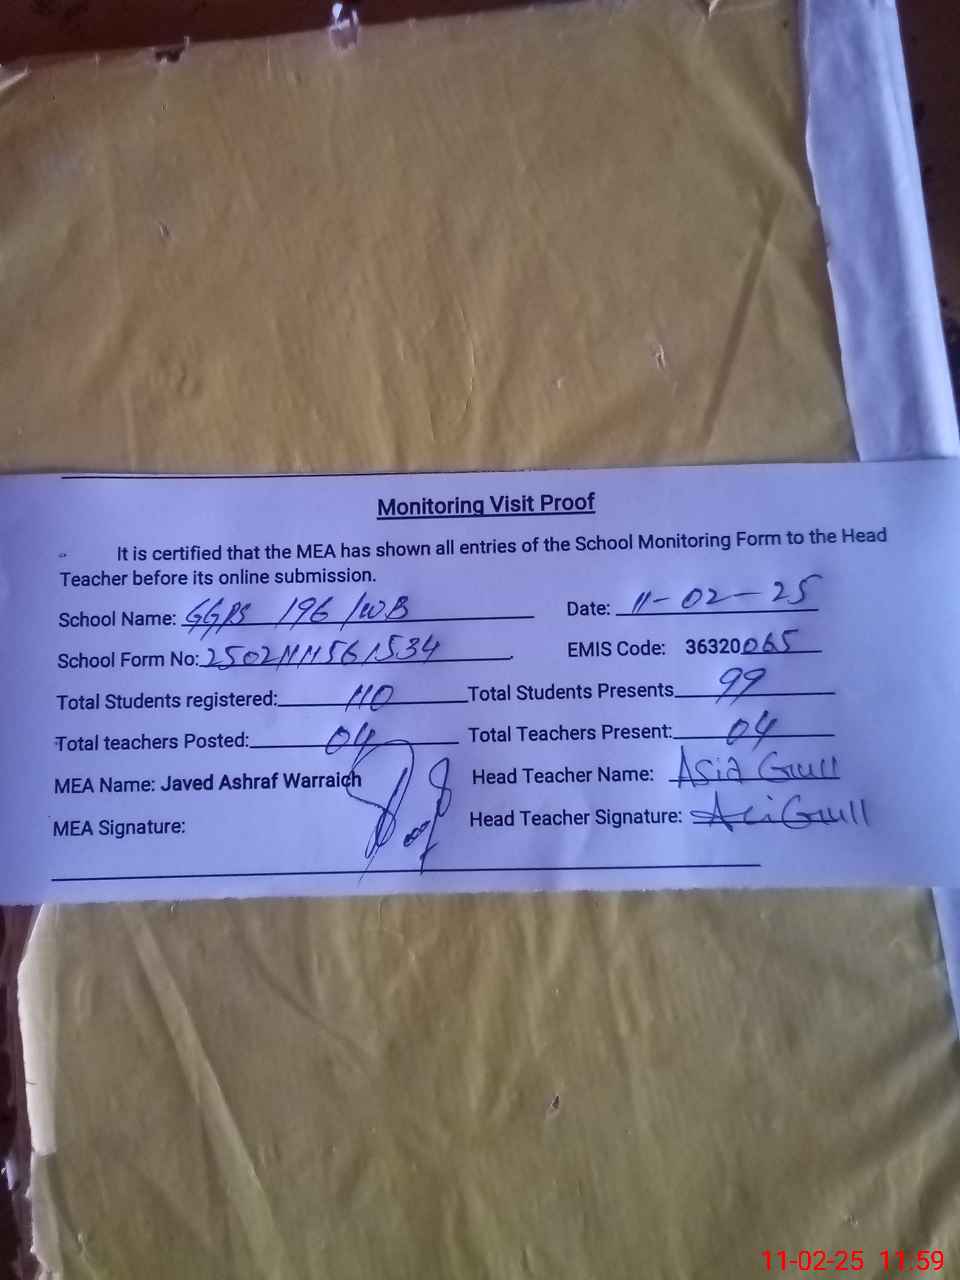 Monitoring Visit Proof
It is certified that the MEA has shown all entries of the School Monitoring Form to the Head
Teacher before its online submission.
School Name: GGPS 196/WB Date: 11-02-25
School Form No: EMIS Code: 36320065
Total Students registered: 110 Total Students Presents 99
Total teachers Posted: 04 Total Teachers Present: 04
MEA Name: Javed Ashraf Warraich Head Teacher Name: Asia Gull
MEA Signature: Head Teacher Signature:
11-02-25 11:59